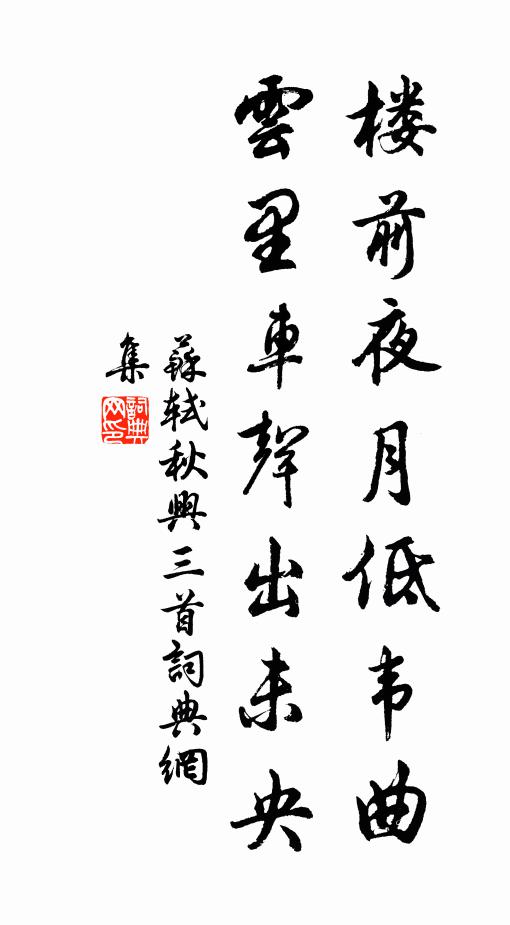 楼前夜月低韦曲
雲里車聲出未央
蘇軾秋興三首詞典網
集
詞典
网印